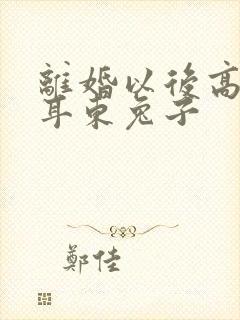 離婚以後高
耳東兔子
鄭佳